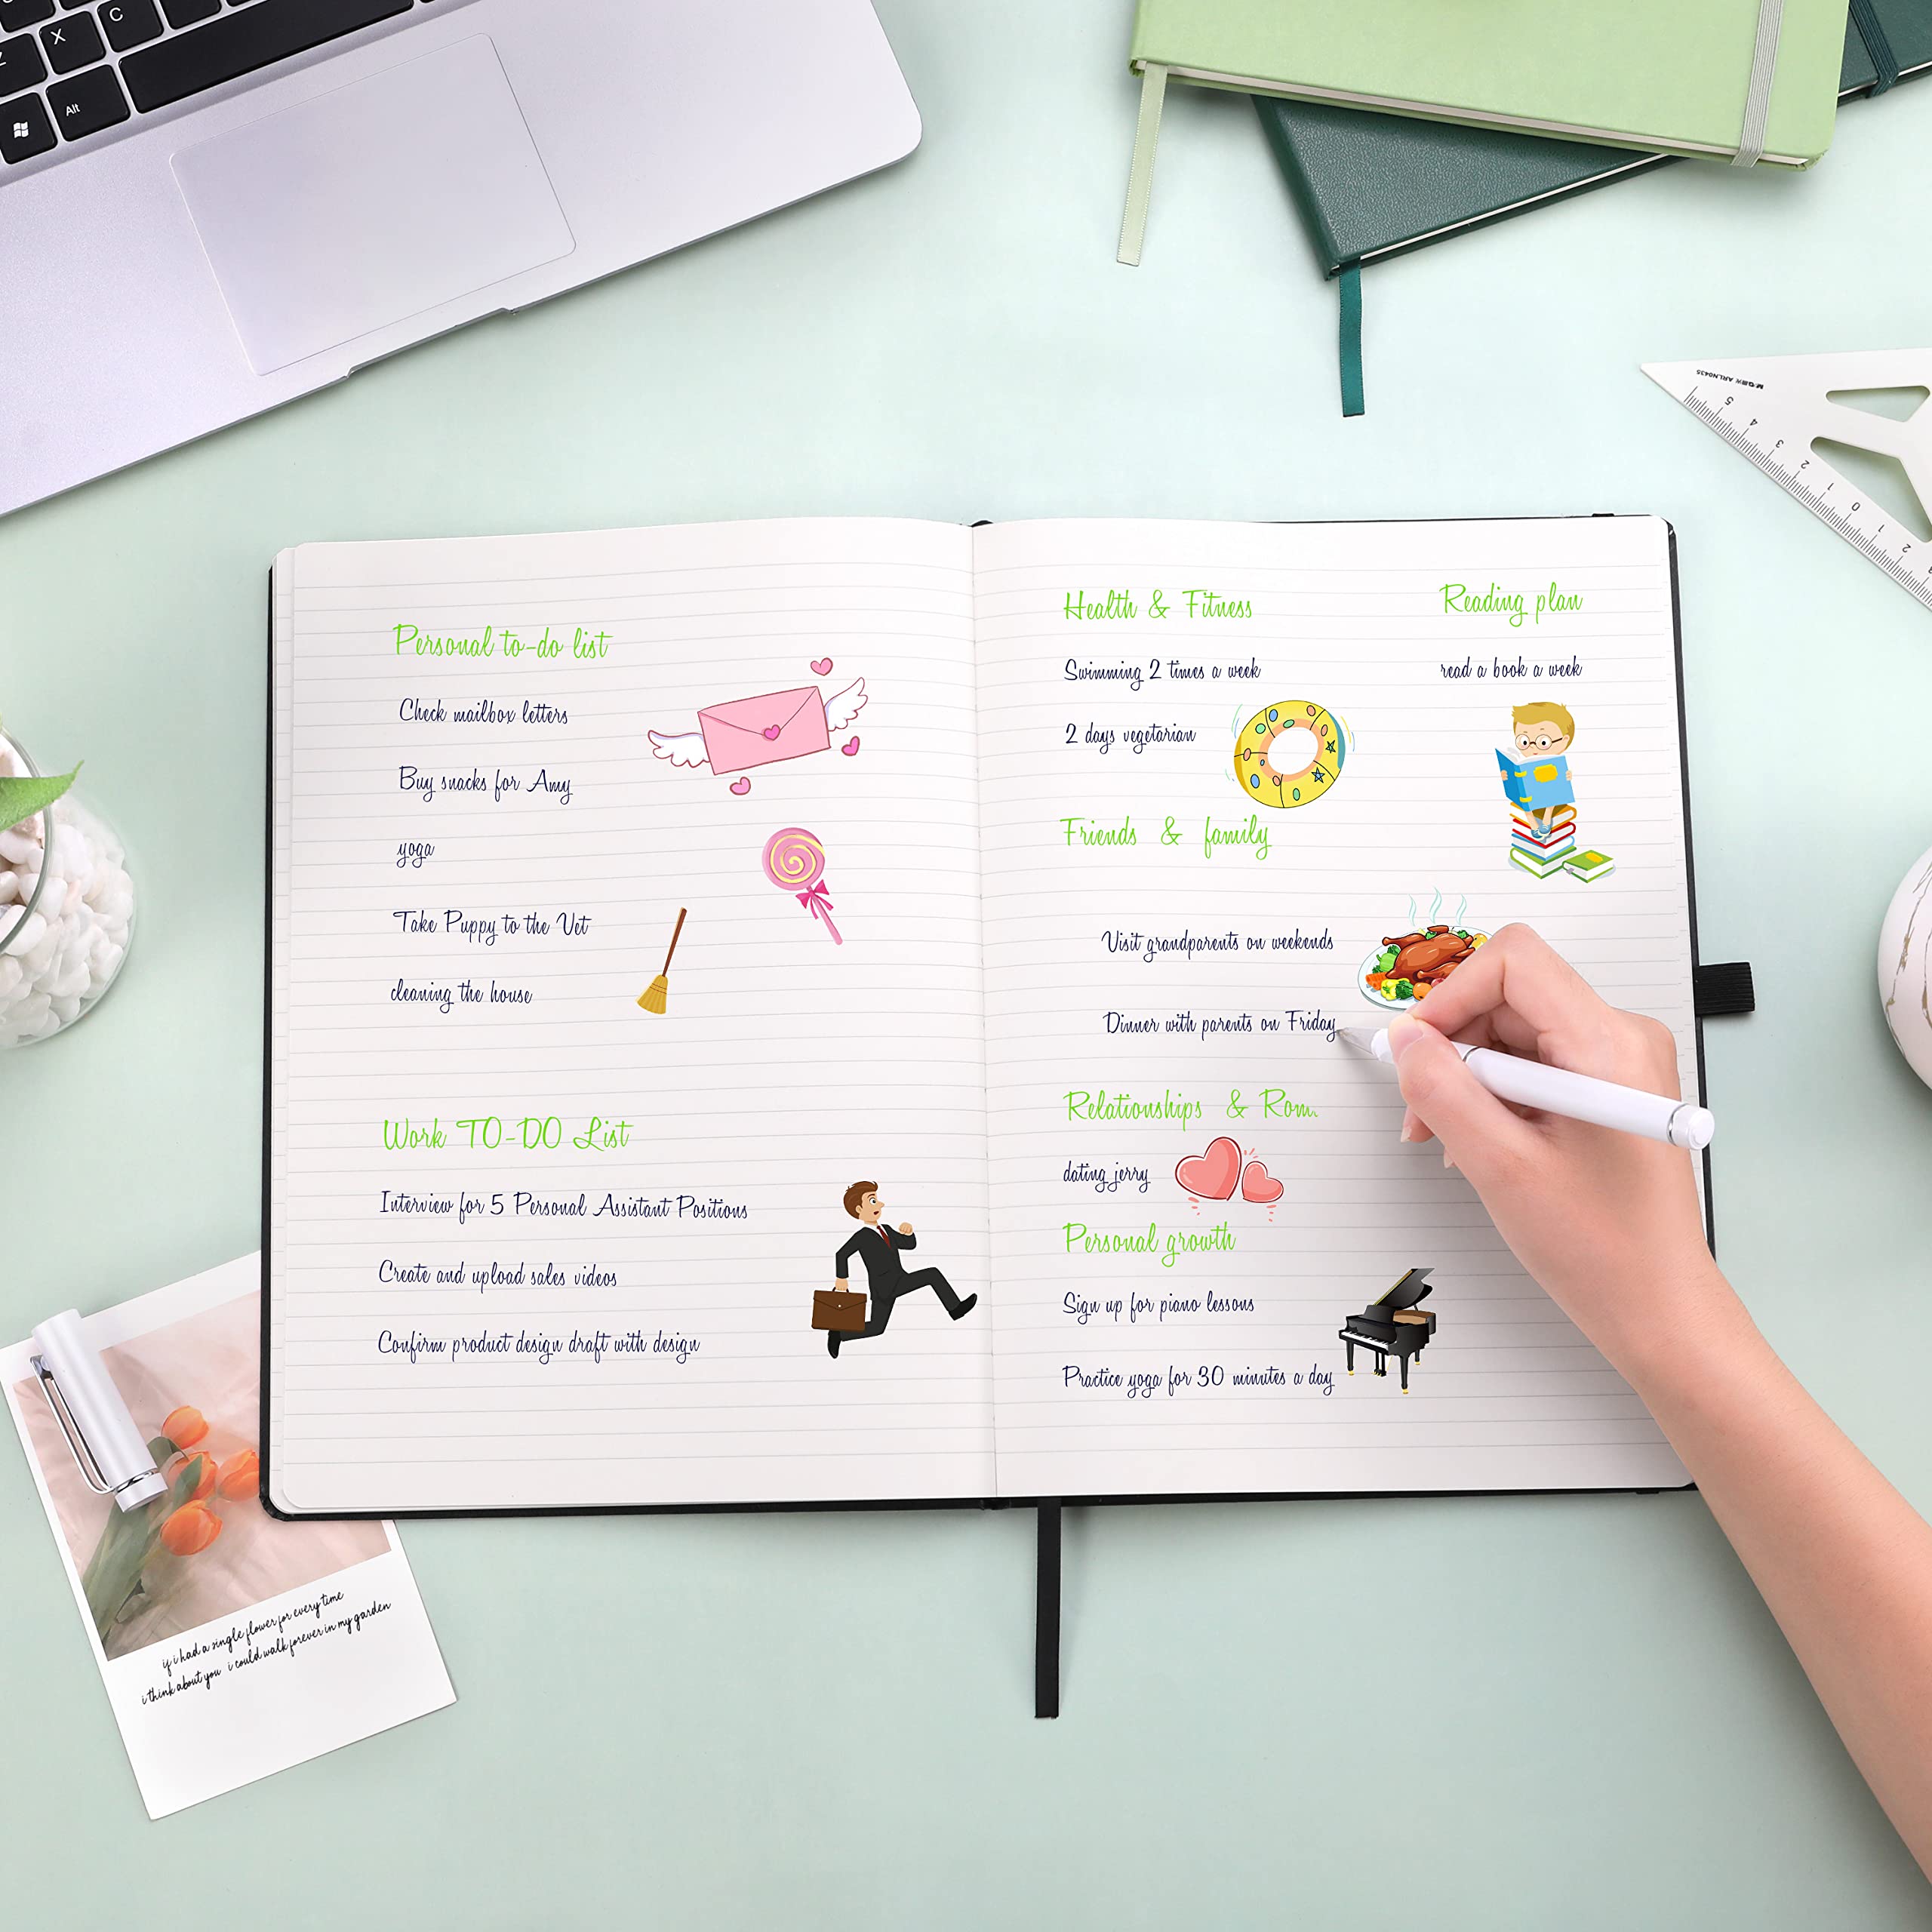 Z
X
C
Alt
M&G晨光 ARLN0435
5
4
3
2
1
0
1
2
Personal to-do list
Check mailbox letters
Buy snacks for Amy
yoga
Take Puppy to the Vet
cleaning the house
Work TO-DO List
Interview for 5 Personal Assistant Positions
Create and upload sales videos
Confirm product design draft with design
Health & Fitness
Swimming 2 times a week
2 days vegetarian
Reading plan
read a book a week
Friends & family
Visit grandparents on weekends
Dinner with parents on Friday
Relationships & Rom.
dating jerry
Personal growth
Sign up for piano lessons
Practice yoga for 30 minutes a day
if i had a single flower for every time
i think about you i could walk forever in my garden